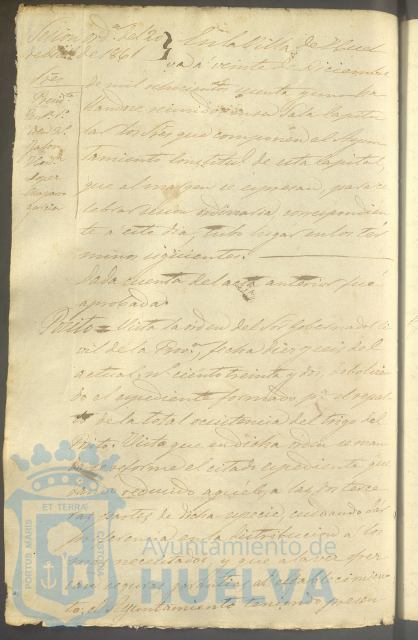 Sesion ord.ª del 20
de Dbre. de 1861
En la Villa de Huel
va á veinte de Diciembre
de mil ochocientos sesenta y uno ha
llandose reunidos en su Sala Capitu
lar los Sres. que componen el Ayun
tamiento Constitul. de esta Capital,
que al margen se espresan, para ce
lebrar sesion ordinaria, correspondien
te a este dia, tuvo lugar en los tér
minos siguientes.
Sres.
Garcia
Dada cuenta del acta anterior fué
aprobada.
Posito = Vista la orden del Sor. Gobernador Ci
vil de la Prov.ª, fecha diez y seis del
actual, n.º ciento treinta y dos, devolvien
do el espediente formado p.ª el repar
to de la total existencia del trigo del
Posito. Vista que en dicha orden se man
da reforme el citado espediente que
dando reducido aquel a las dos terce
ras partes de dicha especie, cuidando dar
preferencia en la distribucion a los
mas necesitados, y que a la vez ofrez
can seguros productos al establecimien
to, el Ayuntamiento teniendo presen
PORTUS MARIS
ET TERRÆ
CUSTODIA
Ayuntamiento de
HUELVA